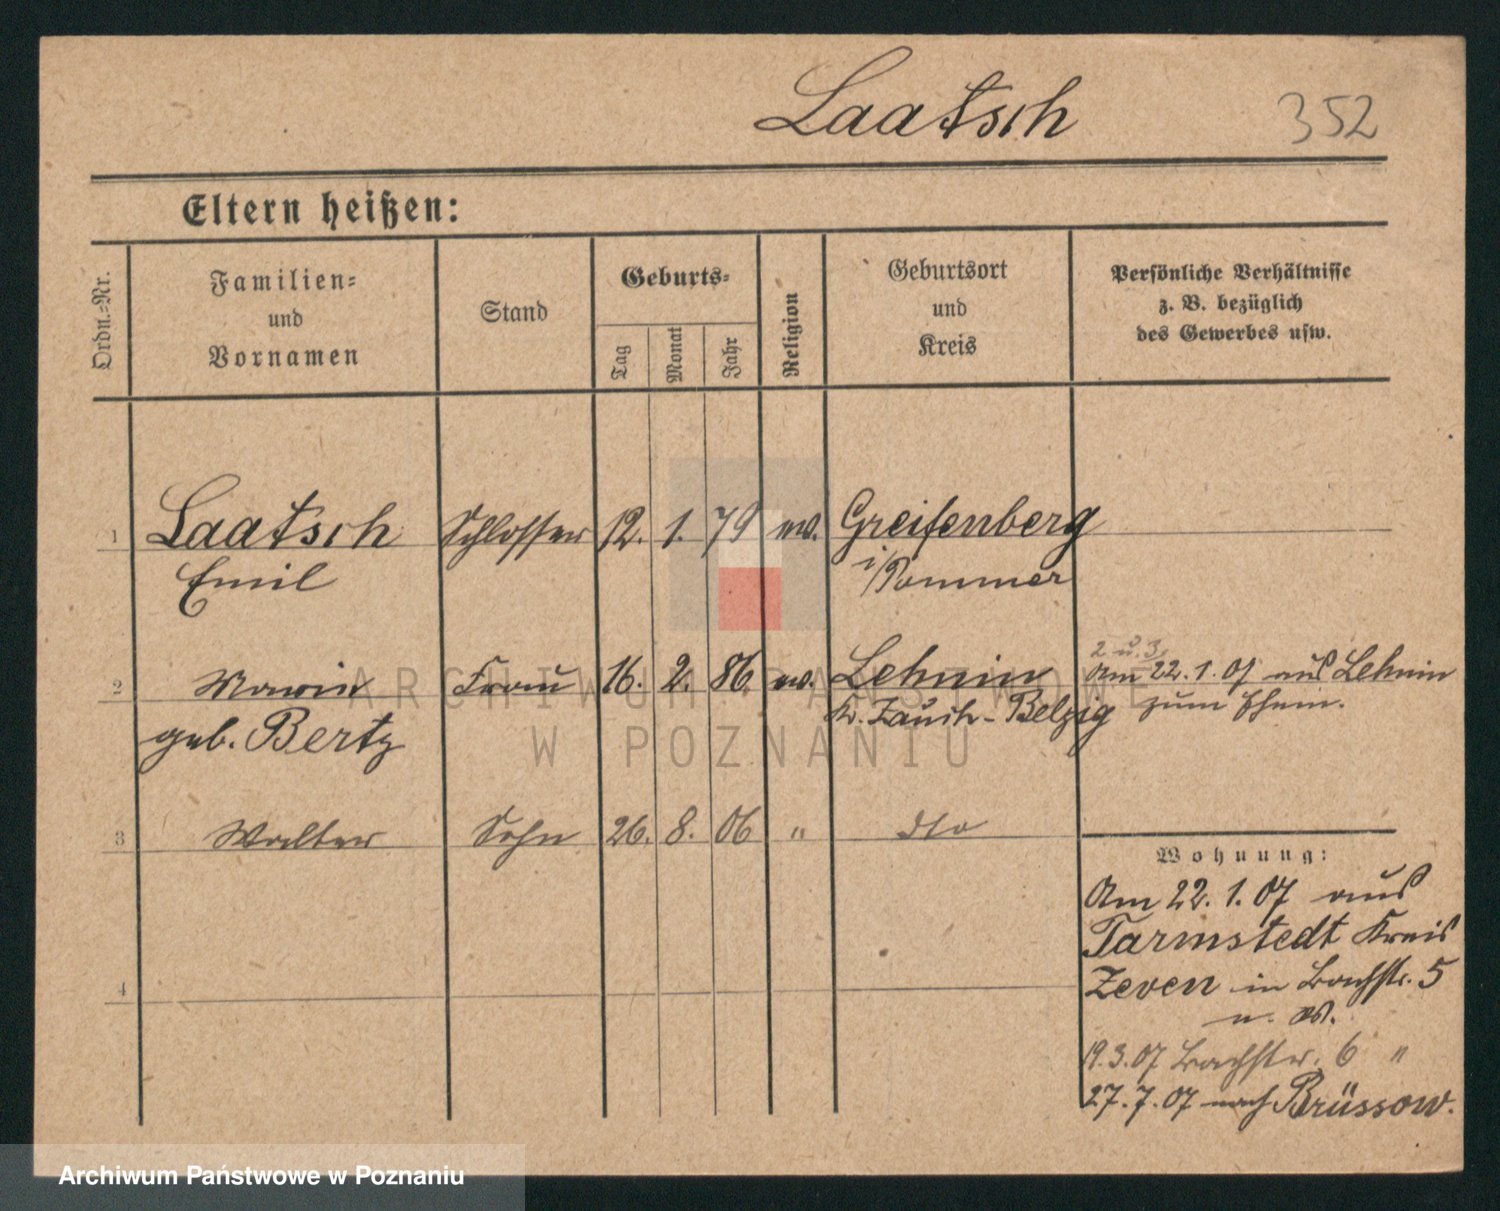 Laatsch 352
Eltern heißen:
Ordn.=Nr.
Familien=
und
Vornamen
Stand
Geburts=
Tag
Monat
Jahr
Religion
Geburtsort
und
Kreis
Persönliche Verhältnisse
z. B. bezüglich
des Gewerbes usw.
1 Laatsch Schlosser 12. 1. 79 ev. Greifenberg
Emil i/Pommer
2 u. 3.
2 Marie Frau 16. 2. 86 ev. Lehnin Am 22.1.07 aus Lehnin
geb. Bertz Kr. Zauch-Belzig zum Ehem.
3 Walter Sohn 26. 8. 06 " dto
Wohnung:
Am 22.1.07 aus
Tarmstedt Kreis
Zeven in Bachstr. 5
4
19.3.07 Bachstr. 6 "
27.7.07 nach Brüssow.
ARCHIWUM PAŃSTWOWE
W POZNANIU
Archiwum Państwowe w Poznaniu